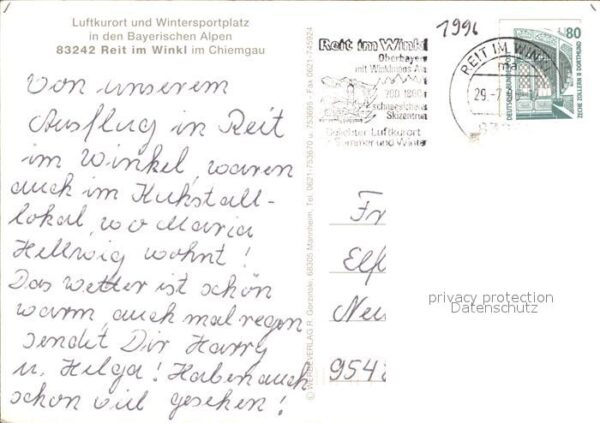 Luftkurort und Wintersportplatz
in den Bayerischen Alpen
83242 Reit im Winkl im Chiemgau
Von unserem
Ausflug in Reit
im Winkel, waren
auch im Kuhstall-
lokal, wo Maria
Hellwig wohnt!
Das Wetter ist schön
warm, auch mal regen
sendet Dir Harry
u. Helga! Haben auch
schon viel gesehen!
© WERBEVERLAG R. Garzinski, 68305 Mannheim, Tel. 0621/753670 u. 753695 · Fax 0621/745924
1996
Reit im Winkl
Oberbayern
mit Winklmoos-Alm
700
Skizentrum
Beliebter Luftkurort
Sommer und Winter
REIT IM WINKL
29.-7.
80
DEUTSCHE BUNDESPOST
ZECHE ZOLLERN II DORTMUND
Fr
Elf
Neu
954
privacy protection
Datenschutz